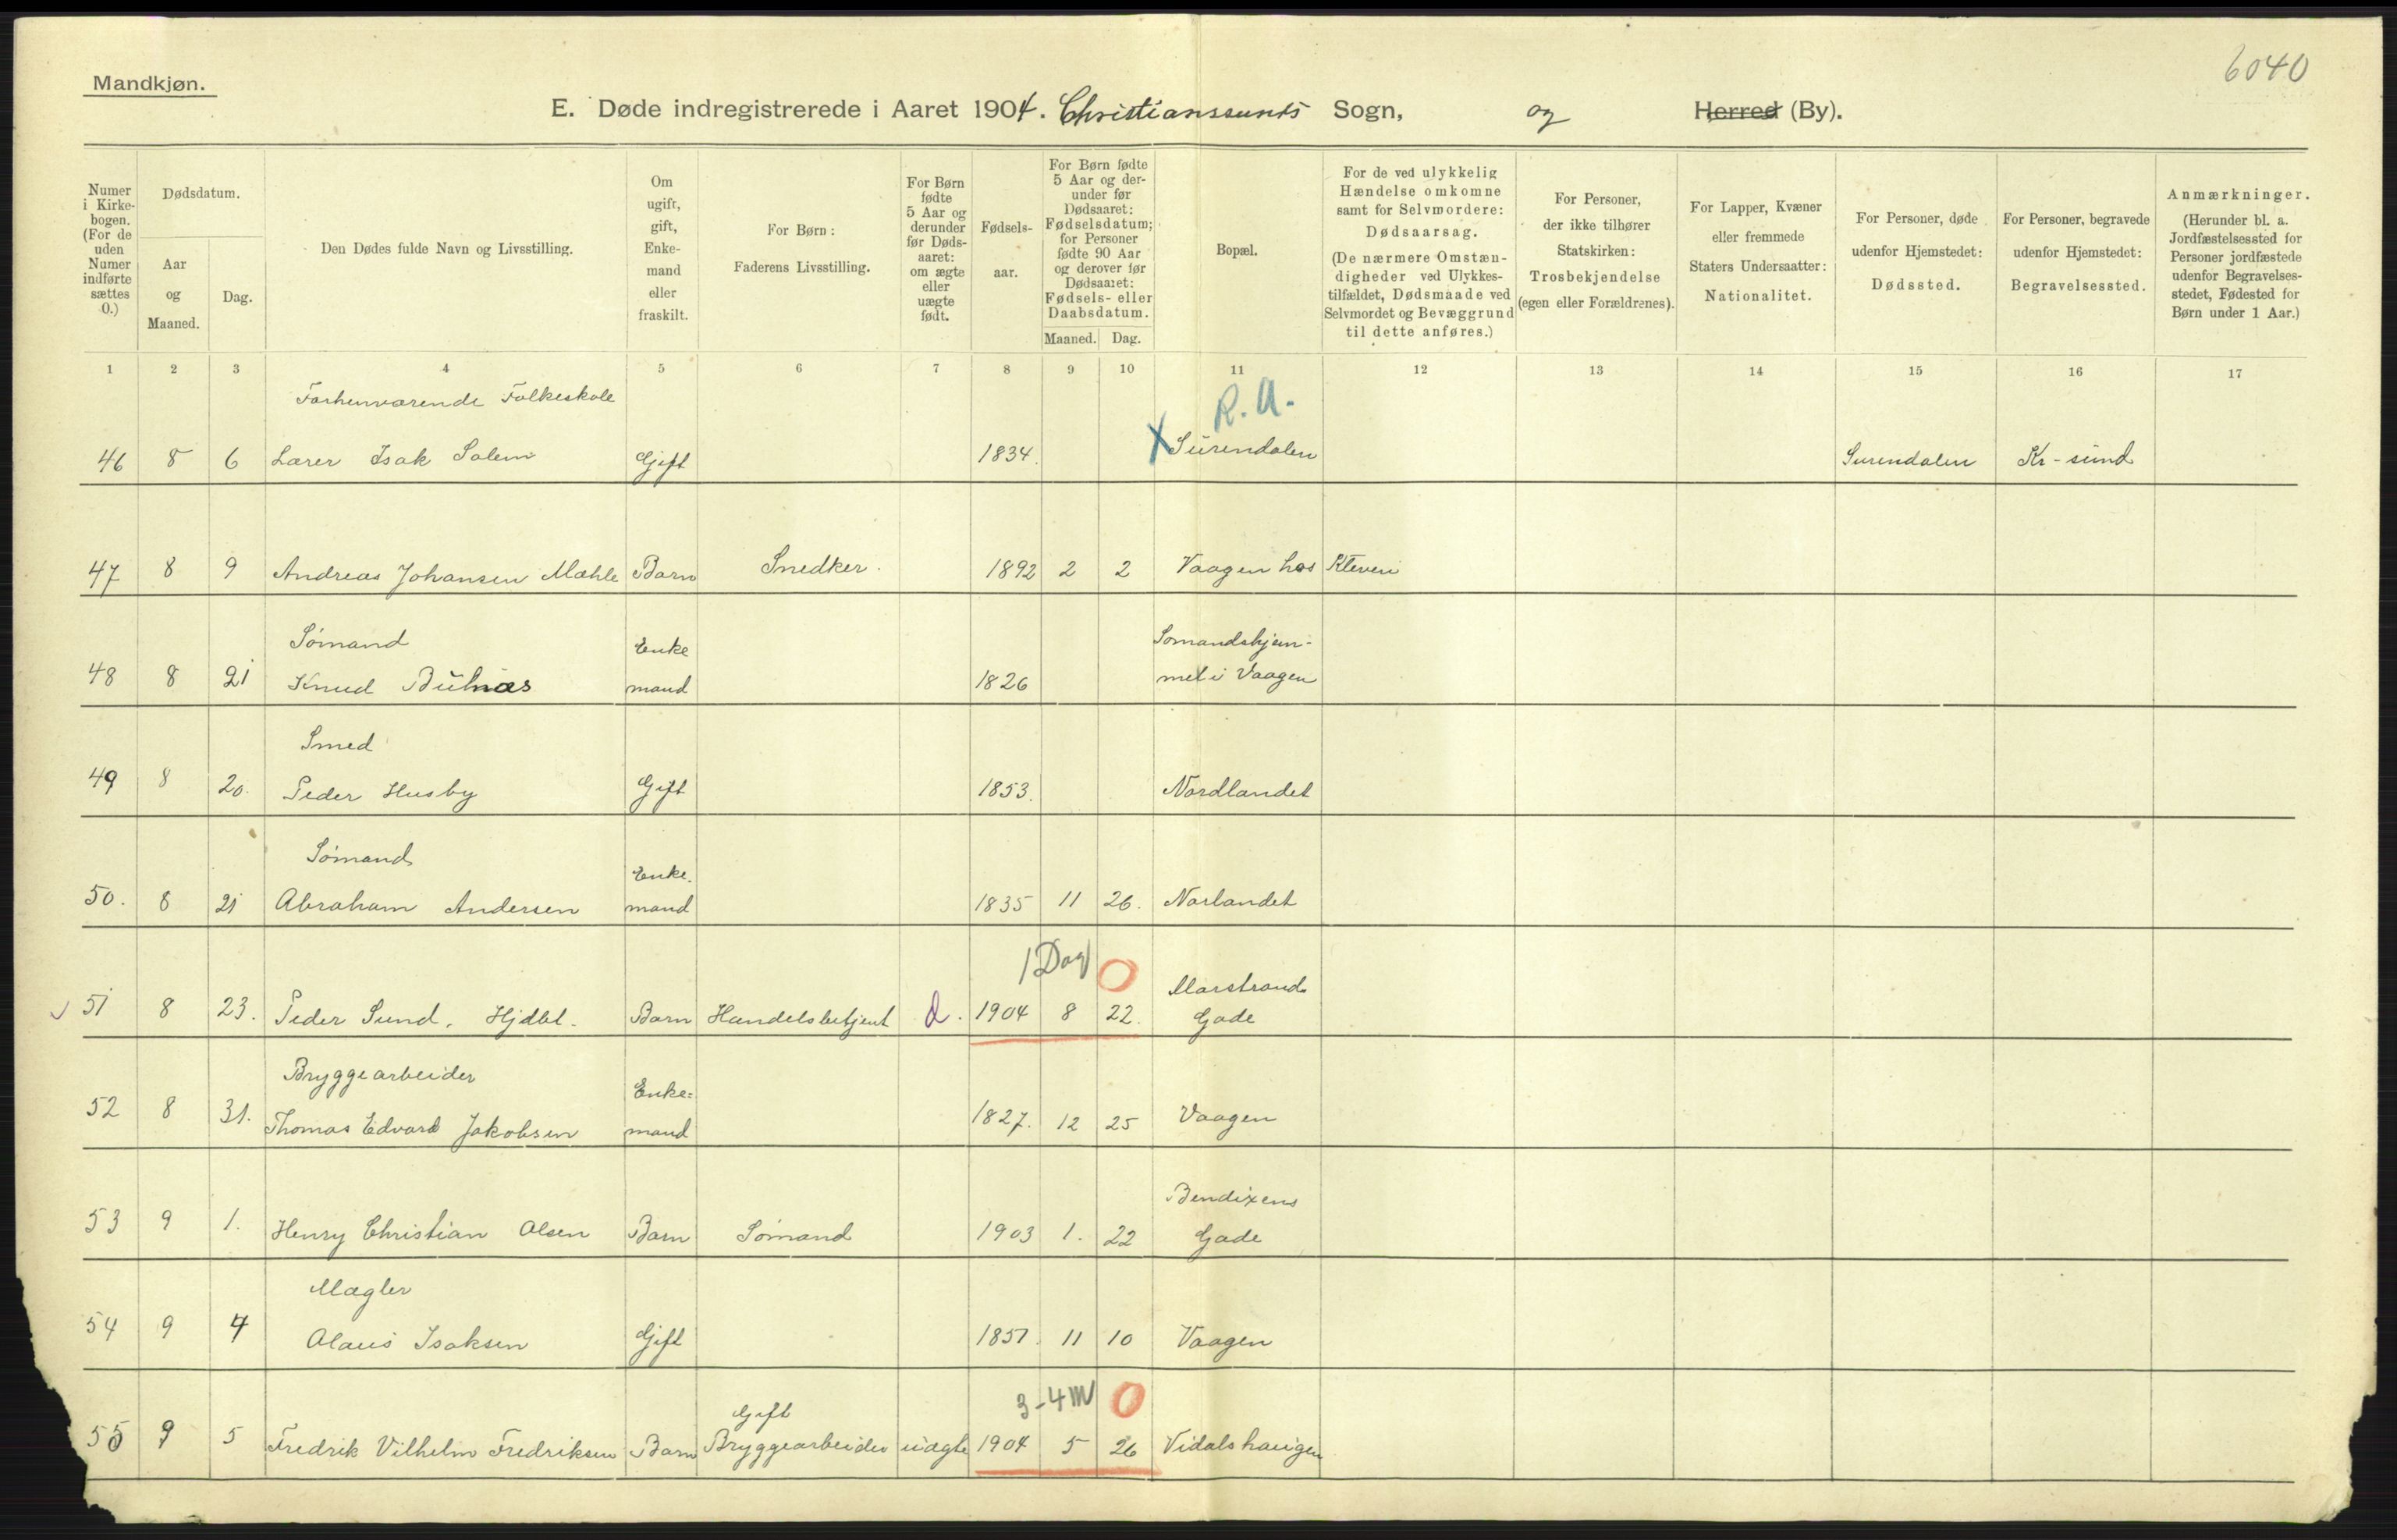 6040
Mandkjøn.
E. Døde indregistrerede i Aaret 1904. Christianssunds Sogn, og Herred (By).
Numer i Kirkebogen. (For de uden Numer indførte sættes 0.)
Dødsdatum.
Aar og Maaned.
Dag.
Den Dødes fulde Navn og Livsstilling.
Om ugift, gift, Enkemand eller fraskilt.
For Børn: Faderens Livsstilling.
For Børn fødte 5 Aar og derunder før Dødsaaret: om ægte eller uægte født.
Fødselsaar.
For Børn fødte 5 Aar og derunder før Dødsaaret: Fødselsdatum; for Personer fødte 90 Aar og derover før Dødsaaret: Fødsels- eller Daabsdatum.
Maaned. Dag.
Bopæl.
For de ved ulykkelig Hændelse omkomne samt for Selvmordere: Dødsaarsag. (De nærmere Omstændigheder ved Ulykkestilfældet, Dødsmaade ved Selvmordet og Bevæggrund til dette anføres.)
For Personer, der ikke tilhører Statskirken: Trosbekjendelse (egen eller Forældrenes).
For Lapper, Kvæner eller fremmede Staters Undersaatter: Nationalitet.
For Personer, døde udenfor Hjemstedet: Dødssted.
For Personer, begravede udenfor Hjemstedet: Begravelsessted.
Anmærkninger. (Herunder bl. a. Jordfæstelsessted for Personer jordfæstede udenfor Begravelsesstedet, Fødested for Børn under 1 Aar.)
1 2 3 4 5 6 7 8 9 10 11 12 13 14 15 16 17
Forhenværende Folkeskole R. A.
46 8 6 Lærer Isak Solem Gift 1834. X Surendalen Surendalen Kr-sund
47 8 9 Andreas Johansen Mæhle Barn Snedker. 1892 2 2 Vaagen hos Kleven
Sømand Enke Sømandshjem-
48 8 21 Knud mand 1826 met i Vaagen
Smed
49 8 20. Peder Husby Gift 1853. Nordlandet
Sømand Enke.
50. 8 21 Abraham Andersen mand 1835 11 26. Norlandet
1 Dag 0 Marstrands
51 8 23. Peder Sund. Hjdbt. Barn Handelsbetjent d. 1904 8 22. Gade
Bryggearbeider Enke=
52 8 31. Thomas Edvard Jakobsen mand 1827. 12 25 Vaagen
Bendixens
53 9 1. Henry Christian Olsen Barn Sømand 1903 1. 22 Gade
Mægler
54 9 4 Olaus Isaksen Gift 1851. 11 10 Vaagen
Gift 3-4 M 0
55 9 5 Fredrik Vilhelm Fredriksen Barn Bryggearbeider uægte 1904 5 26 Vidalshaugen